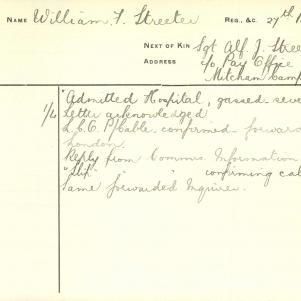 NAME William F. Streeter REG. &C. 27th
NEXT OF KIN Sgt Alf. J. Stree
ADDRESS c/o Pay Office
Mitcham Camp
"Admitted Hospital, gassed seve
1/4 Letter acknowledged
P/Cable confirmed forward
London.
Reply from Comms. Information
"Slip" " " confirming cab
Same forwarded Inquirer.